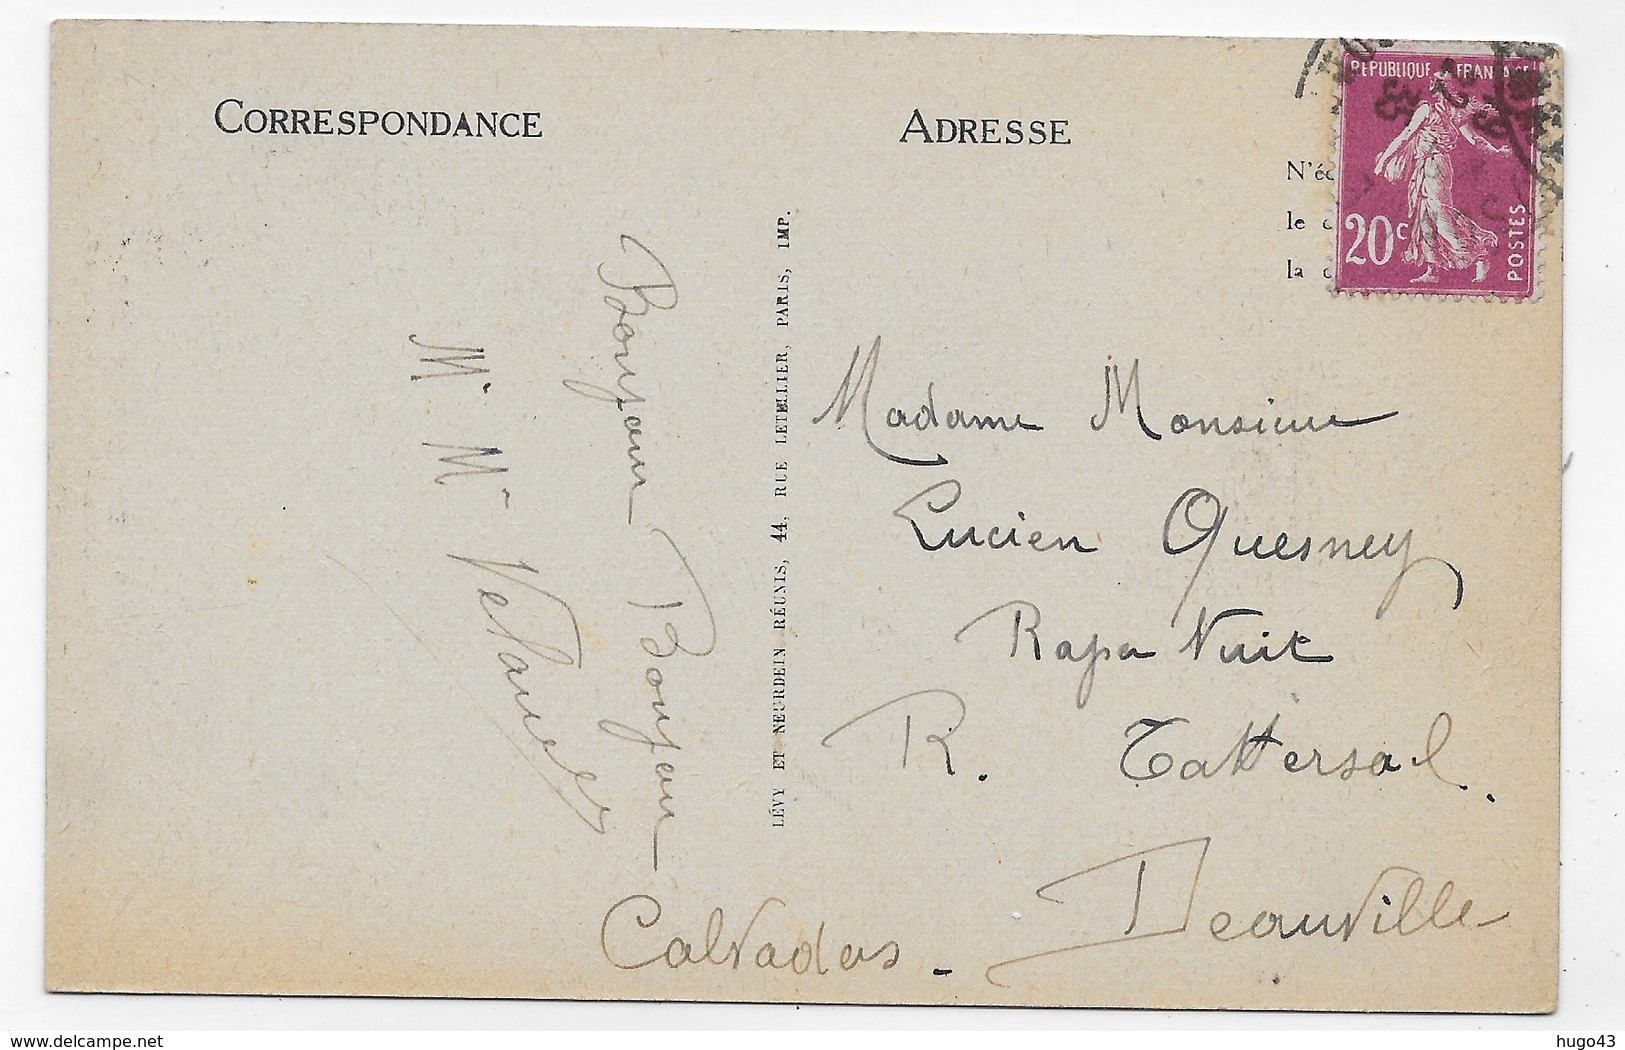 CORRESPONDANCE
ADRESSE
N'éc
le c
la c
RÉPUBLIQUE FRANÇAISE
20c
POSTES
33
LÉVY ET NEURDEIN RÉUNIS, 44, RUE LETELLIER, PARIS, IMP.
Bonjour Bonjour
Mr Me
Madame Monsieur
Lucien Quesney
Rapa Nuit
R. Tattersal.
Deauville
Calvados.
delcampe.net
hugo43